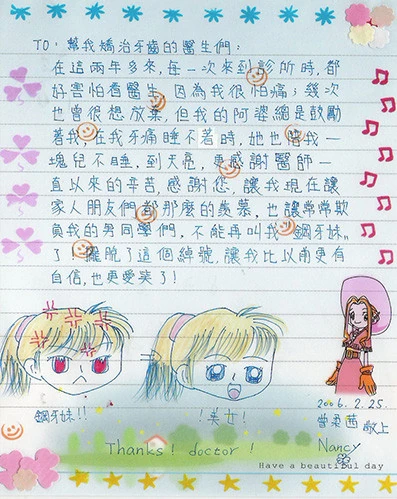 TO：幫我矯治牙齒的醫生們：
在這兩年多來，每一次來到診所時，都
好害怕看醫生，因為我很怕痛；幾次
也曾很想放棄，但我的阿婆總是鼓勵
著我，在我牙痛睡不著時，她也陪我一
塊兒不睡，到天亮，更感謝醫師一
直以來的辛苦，感謝您，讓我現在讓
家人朋友們都那麼的羨慕，也讓常常欺
負我的男同學們，不能再叫我"鋼牙妹"
了，擺脫了這個綽號，讓我比以前更有
自信，也更愛笑了！
鋼牙妹!!
！美女！
2006.2.25.
曾柔茜 敬上
Thanks! doctor!
Nancy
Have a beautiful day